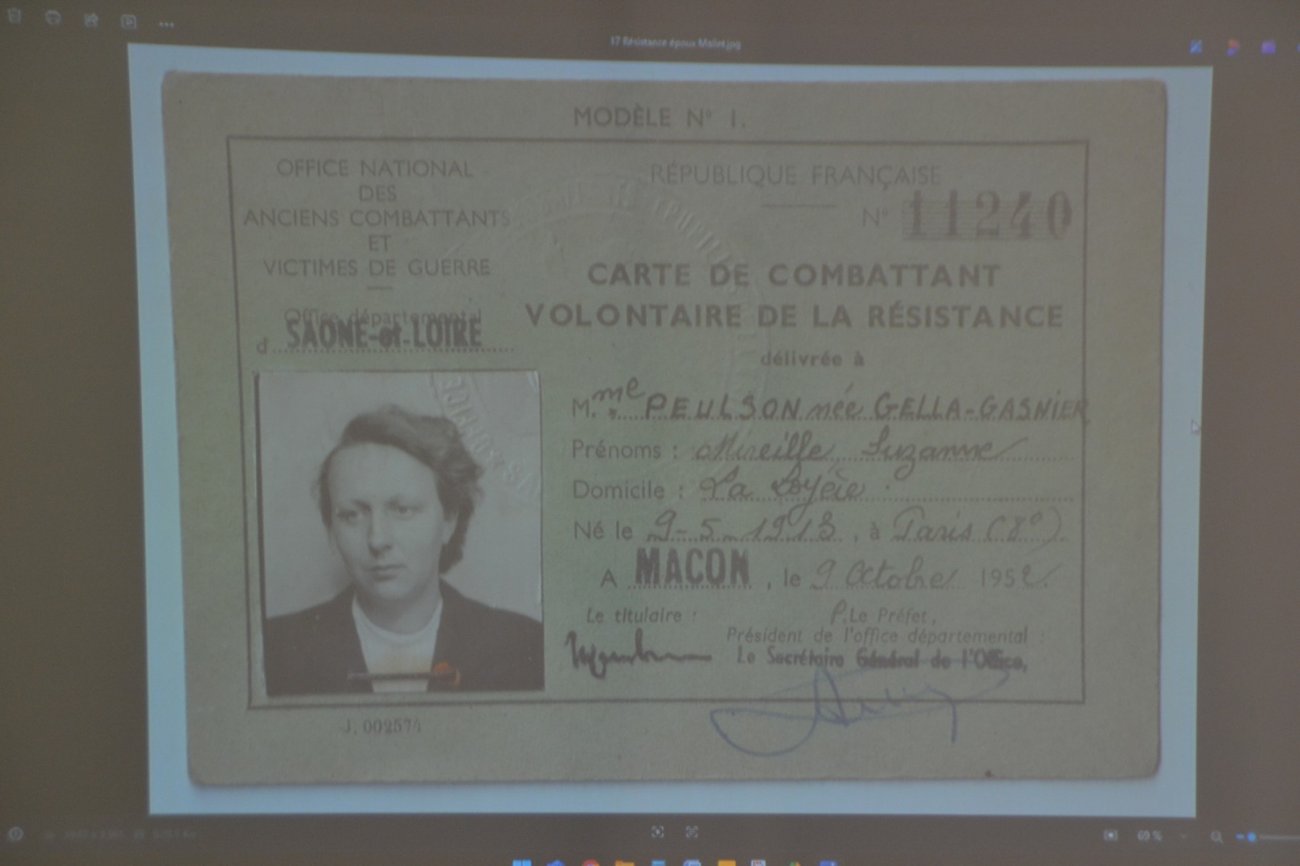 17 Résistance époux Mallet.jpg
MODÈLE N° 1.
OFFICE NATIONAL
DES
ANCIENS COMBATTANTS
ET
VICTIMES DE GUERRE
Office départemental
d SAONE-et-LOIRE
RÉPUBLIQUE FRANÇAISE
N° 11240
CARTE DE COMBATTANT
VOLONTAIRE DE LA RÉSISTANCE
délivrée à
M.me PEULSON née GELLA-GASNIER
Prénoms : Mireille, Suzanne
Domicile : La
Né le 9-5-1913, à Paris (8e)
A MACON, le 9 Octobre 1952
Le titulaire :
P. Le Préfet,
Président de l'office départemental :
Le Secrétaire Général de l'Office,
J. 002574
69 %